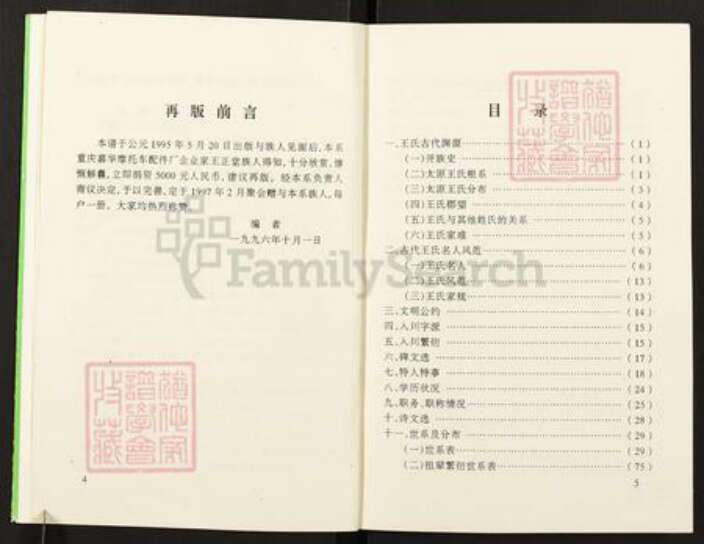 再版前言
本谱于公元1995年5月20日出版与族人见面后,本系
重庆嘉华摩托车配件厂企业家王正棠族人得知,十分欣赏,慷
慨解囊,立即捐资5000元人民币,建议再版。经本系负责人
商议决定,予以完善,定于1997年2月聚会赠与本系族人,每
户一册。大家均热烈称赞。
编者
一九九六年十月一日
4
目录
一、王氏古代渊源 (1)
(一)开族史 (1)
(二)太原王氏根系 (1)
(三)太原王氏分布 (3)
(四)王氏郡望 (4)
(五)王氏与其他姓氏的关系 (5)
(六)王氏家难 (5)
二、古代王氏名人风范 (6)
(一)王氏名人 (6)
(二)王氏风范 (13)
(三)王氏家规 (13)
三、文明公约 (14)
四、入川字派 (15)
五、入川繁衍 (15)
六、碑文选 (17)
七、特人特事 (18)
八、学历状况 (24)
九、职务、职称情况 (25)
十、诗文选 (28)
十一、世系及分布 (29)
(一)世系表 (29)
(二)祖辈繁衍世系表 (75)
5
FamilySearch